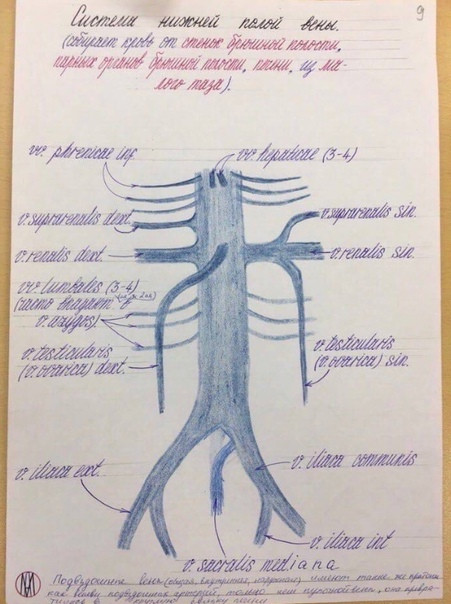 9
Система нижней полой вены.
(собирает кровь от стенок брюшной полости,
парных органов брюшной полости, печени, из ма-
лого таза).
vv. phrenicae inf.
vv. hepaticae (3-4)
v. suprarenalis dext.
v. suprarenalis sin.
v. renalis dext.
v. renalis sin.
vv. lumbalis (3-4)
(часто впадает в
v. azygos).
v. testicularis
(v. ovarica) dext.
v. testicularis
(v. ovarica) sin.
v. iliaca ext.
v. iliaca communis
v. iliaca int
v. sacralis mediana
Подвздошные вены (общая, внутренняя, наружная) имеют такие же
как ветви подвздошных артерий, только